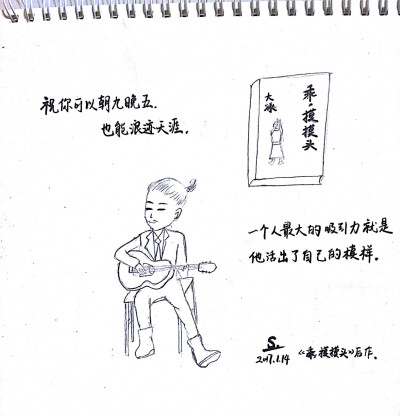 祝你可以朝九晚五.
也能浪迹天涯.
乖·摸摸头
大冰
一个人最大的吸引力就是
他活出了自己的模样.
S.
2017.1.14 《乖.摸摸头》后作.